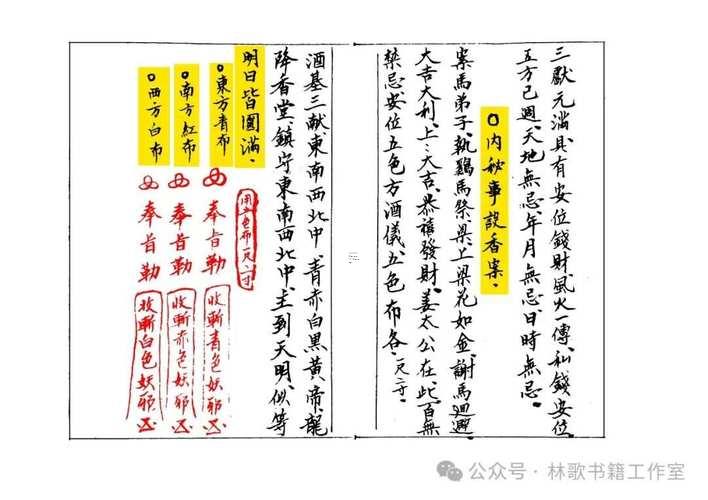 三獻元滿具有安位錢財風火一傳、私錢安位
五方已週、天地無忌、年月無忌日時無忌。
○內秘事設香案。
案馬弟子、執鷄馬祭、梁上梁花如金、謝馬迴避、
大吉大利、上々大吉、恭禧發財、姜太公在此、百無
禁忌、安位五色方酒儀、五色布各一尺二寸。
酒基三献東南西北中、青赤白黑黃帝、龍
降香堂、鎮守東南西北中、主到天明、似等
明日皆圓滿、
用五色布一尺二寸
○東方青布
奉旨勒
收斬青色妖邪
○南方紅布
奉旨勒
收斬赤色妖邪
○西方白布
奉旨勒
收斬白色妖邪
公众号·林歌书籍工作室